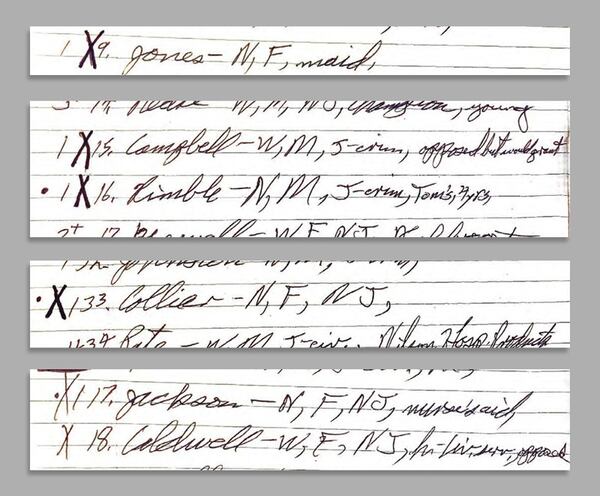 1 X 9. Jones - N, F, maid,
W, M, NJ, champion, young
1 X 15. Campbell - W, M, J-crim, opposed but would grant
• 1 X 16. Kimble - N, M, J-crim, Tom's, 7 yrs,
2+ 17. W F NJ
N, M,
• X 133. Collier - N, F, NJ,
34 W M J-civ. Hosp. Products
• X 1 17. Jackson - N, F, NJ, nurse's aid,
X 18. Caldwell - W, F, NJ, opposed